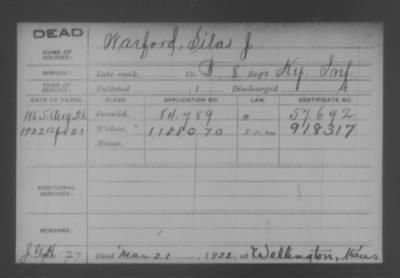 DEAD
NAME OF SOLDIER: Warford, Silas J
SERVICE: Late rank, Co. B, 8 Reg't Ky. Inf
TERM OF SERVICE: Enlisted , 1 Discharged , 1
DATE OF FILING. CLASS. APPLICATION NO. LAW. CERTIFICATE NO.
1865 Aug 26 Invalid, 84.789 57.692
1922 Apr 21 Widow, 1188070 918317
Minor,
ADDITIONAL SERVICES:
REMARKS:
Died Mar 21, 1922, at Wellington, Kans